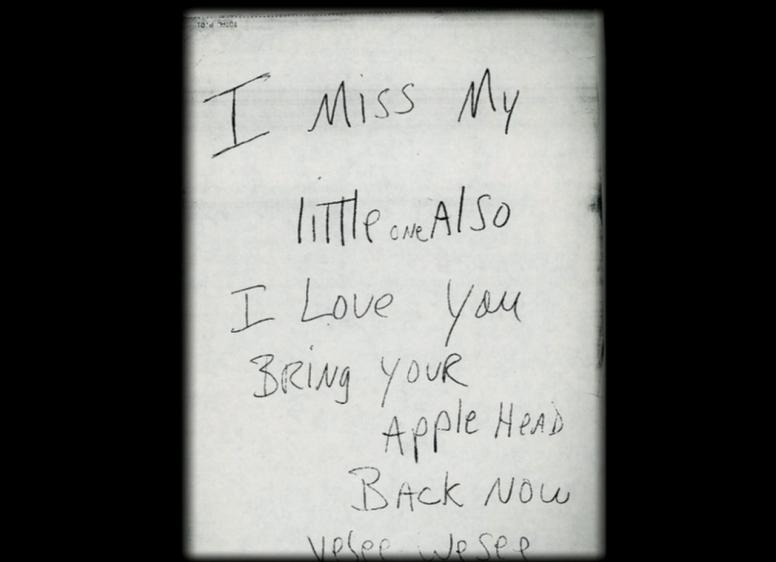 I Miss My
little one Also
I Love You
BRiNg YOUR
Apple HEAD
BACK NOW